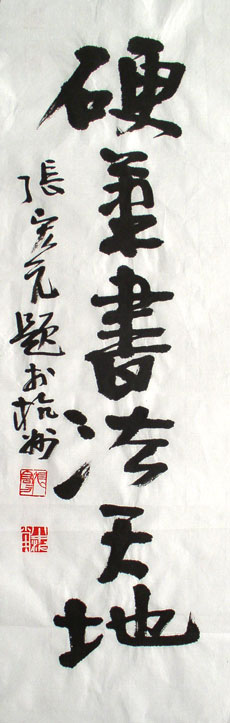 硬筆書法天地
張元題於杭州